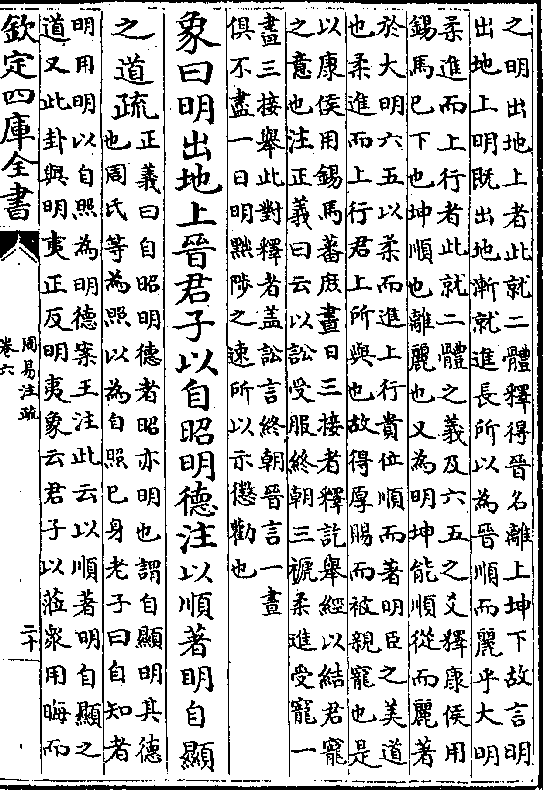 之明出地上者此就二體釋得晉名離上坤下故言明
出地上明既出地漸就進長所以為晉順而麗乎大明
柔進而上行者此就二體之義及六五之爻釋康侯用
錫馬已下也坤順也離麗也又為明坤能順從而麗著
於大明六五以柔而進上行貴位順而著明臣之美道
也柔進而上行君上所與也故得厚賜而被親寵也是
以康侯用錫馬蕃庶晝日三接者釋訖舉經以結君寵
之意也注正義曰云以訟受服終朝三褫柔進受寵一
晝三接舉此對釋者蓋訟言終朝晉言一晝
俱不盡一日明黜陟之速所以示懲勸也
象曰明出地上晉君子以自昭明德注以順著明自顯
之道疏正義曰自昭明德者昭亦明也謂自顯明其德
也周氏等為照以為自照已身老子曰自知者
明用明以自照為明德案王注此云以順著明自顯之
道又此卦與明夷正反明夷象云君子以莅衆用晦而
欽定四庫全書
周易注疏
卷六
二十